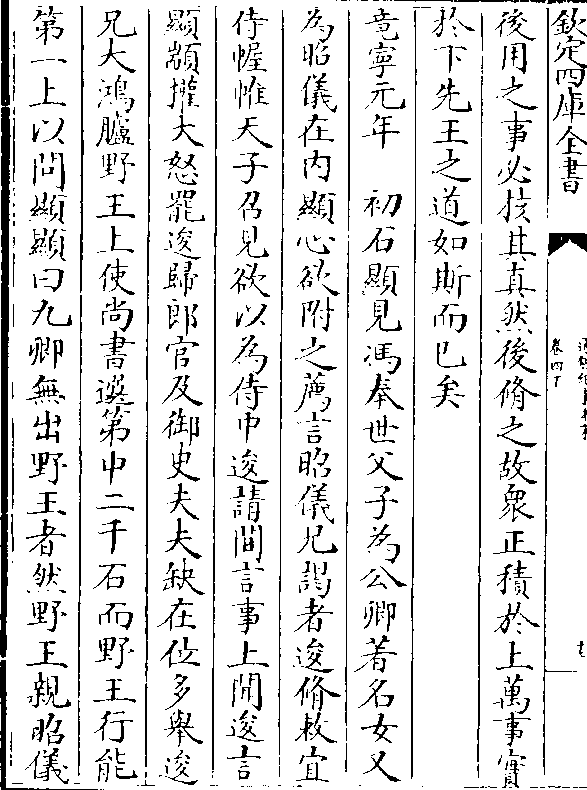 欽定四庫全書
卷四下
後用之事必核其真然後脩之故衆正積於上萬事實
於下先王之道如斯而已矣
竟寧元年　初石顯見馮奉世父子為公卿著名女又
為昭儀在内顯心欲附之薦言昭儀兄謁者逡脩敕宜
侍幄帷天子召見欲以為侍中逡請間言事上聞逡言
顯顓權大怒罷逡歸郎官及御史大夫缺在位多舉逡
兄大鴻臚野王上使尚書選第中二千石而野王行能
第一上以問顯顯曰九卿無出野王者然野王親昭儀